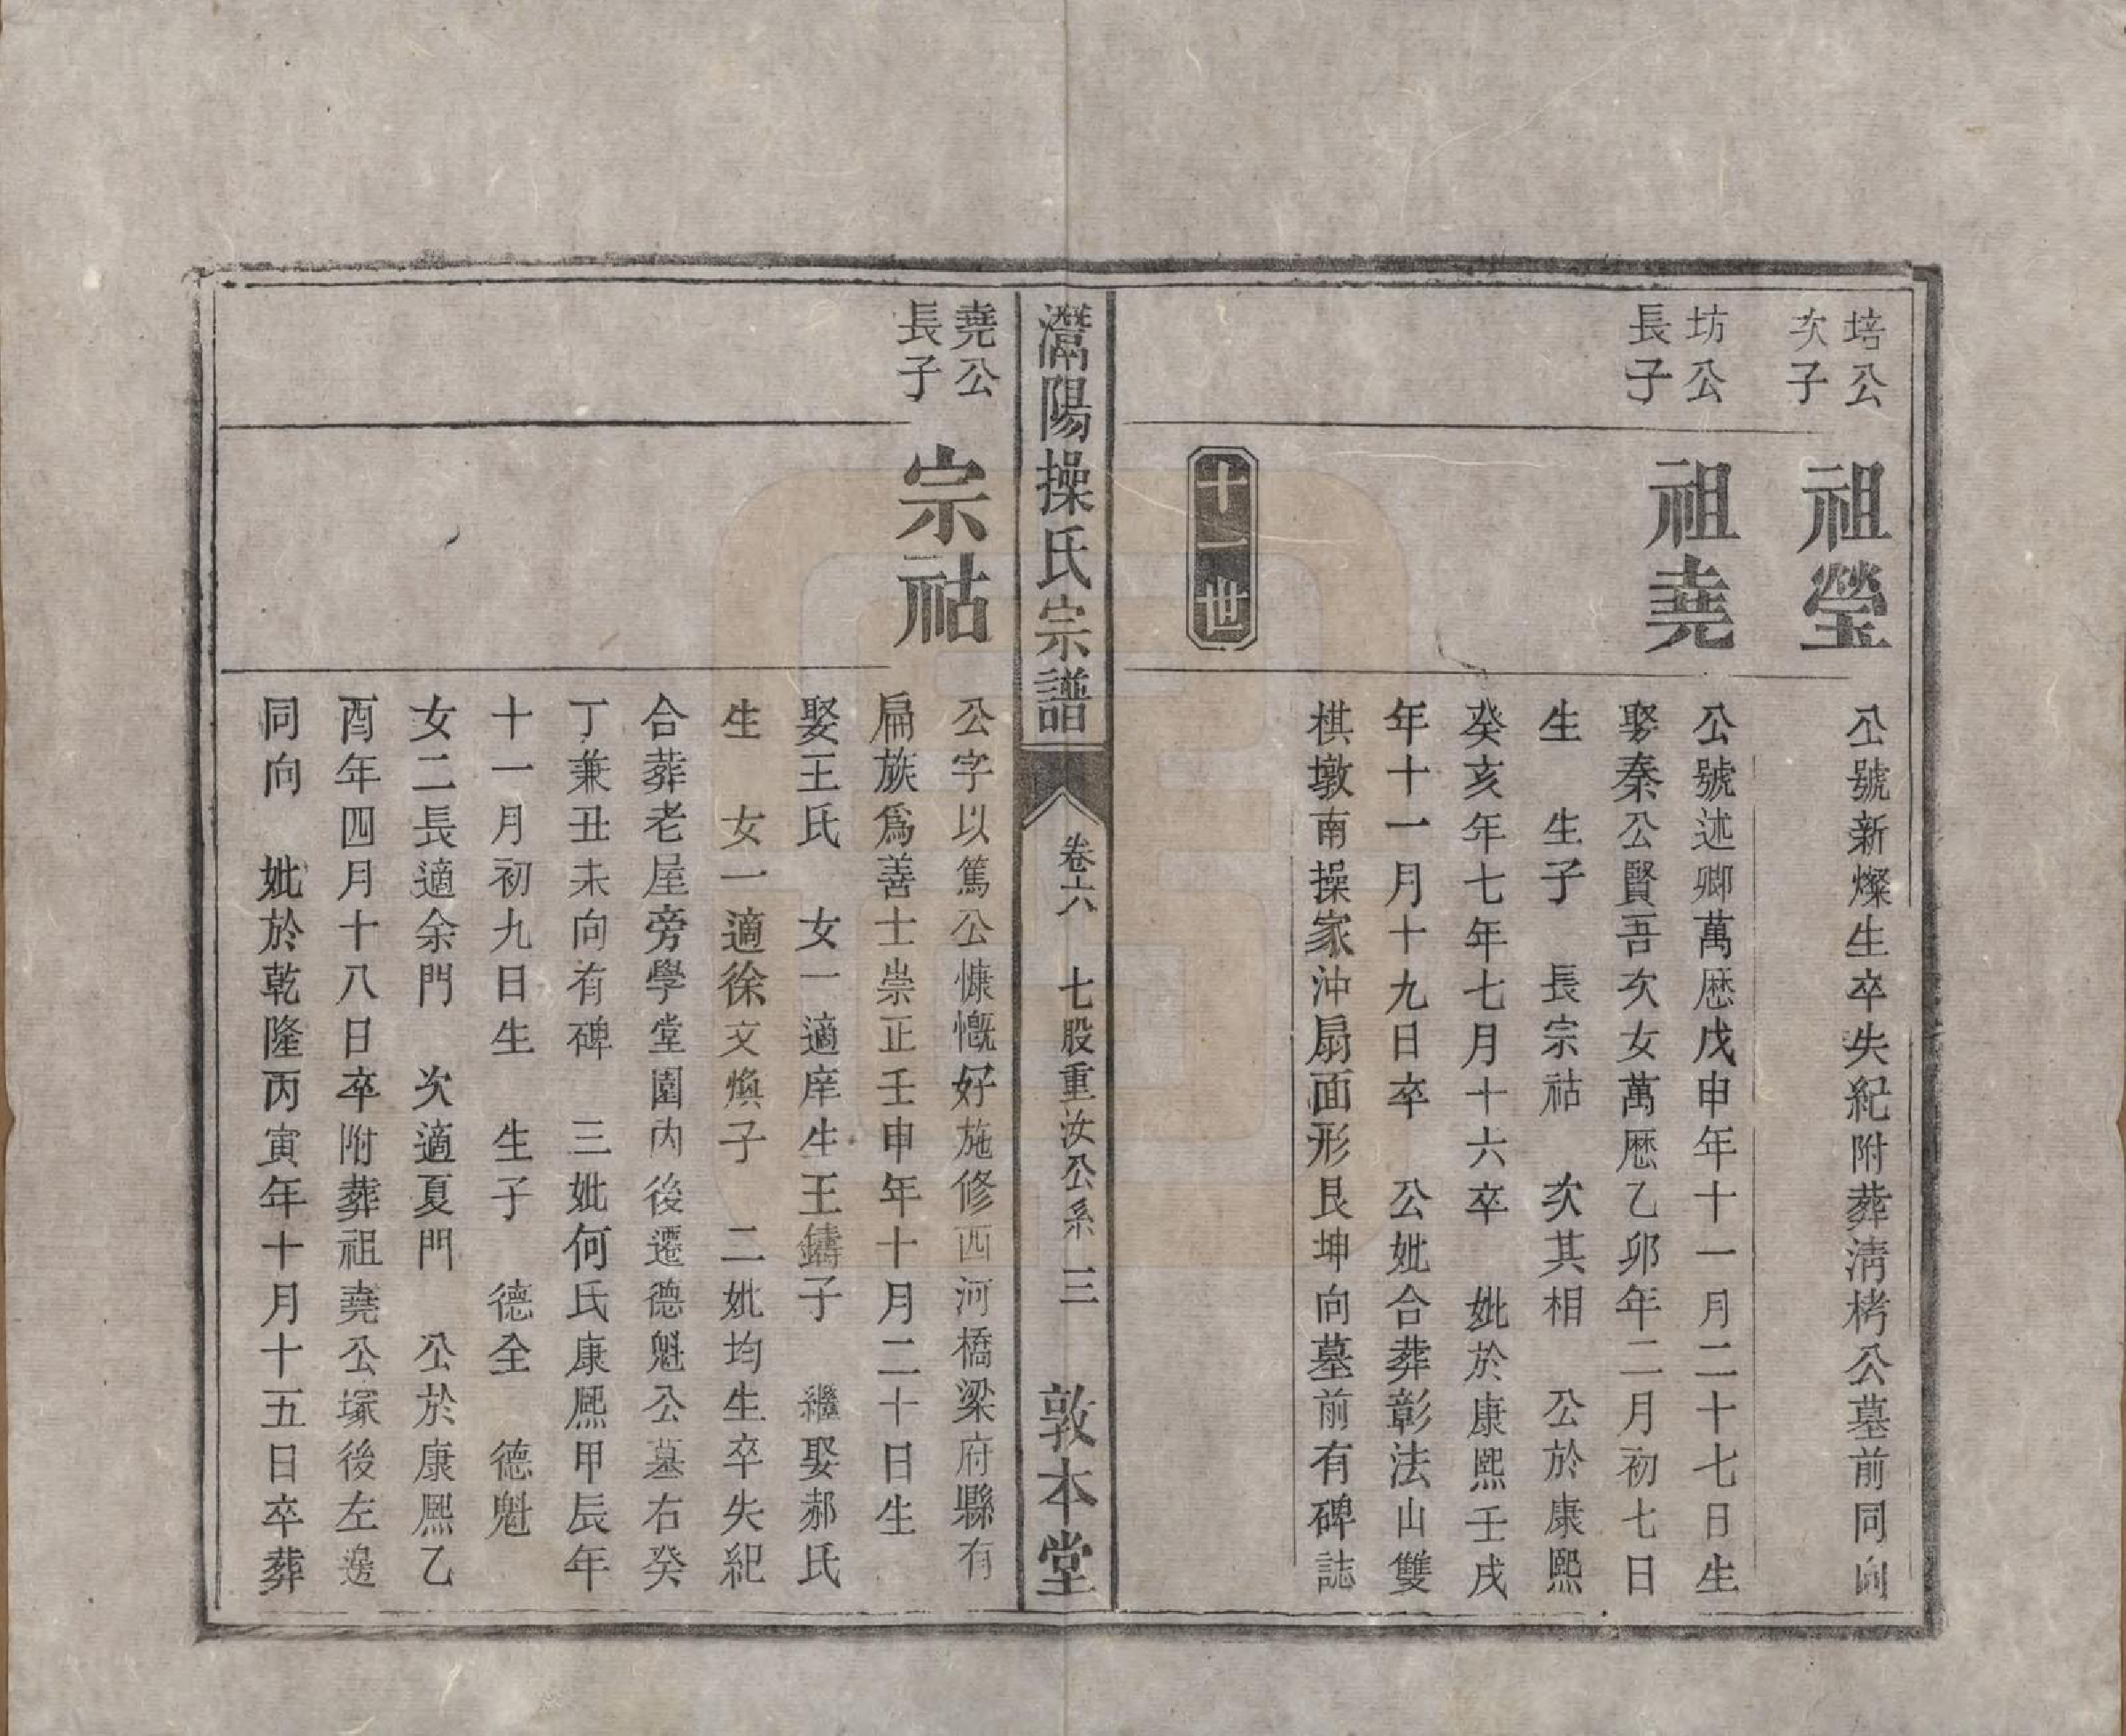 培公
次子
祖瑩
公號新燦生卒失紀附葬淸栲公墓前同向
坊公
長子
祖堯
公號述卿萬歷戊申年十一月二十七日生
娶秦公賢吾次女萬歷乙卯年二月初七日
生 生子 長宗祜 次其相 公於康熙
癸亥年七年七月十六卒 妣於康熙壬戌
年十一月十九日卒 公妣合葬彰法山雙
棋墩南操家沖扇面形艮坤向墓前有碑誌
十一世
灊陽操氏宗譜
卷六 七股重汝公系 三
敦本堂
堯公
長子
宗祜
公字以篤公慷慨好施修西河橋梁府縣有
扁族爲善士崇正壬申年十月二十日生
娶王氏 女一適庠生王鑄子 繼娶郝氏
生 女一適徐文煥子 二妣均生卒失紀
合葬老屋旁學堂園內後遷德魁公墓右癸
丁兼丑未向有碑 三妣何氏康熙甲辰年
十一月初九日生 生子 德全 德魁
女二長適余門 次適夏門 公於康熙乙
酉年四月十八日卒附葬祖堯公塚後左邊
同向 妣於乾隆丙寅年十月十五日卒葬